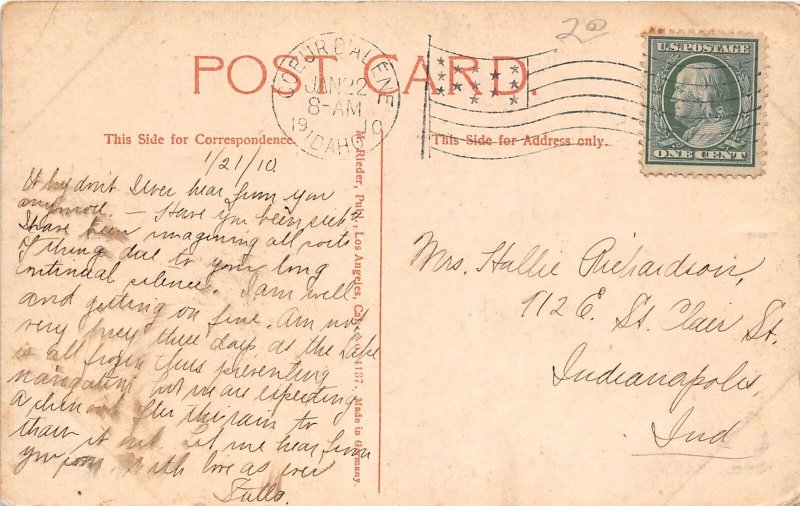 2 00
U.S. POSTAGE
ONE CENT
POST CARD.
COEUR D'ALENE
JAN 22
8-AM
1910
IDAHO
This Side for Correspondence.
This Side for Address only.
M. Rieder, Publ., Los Angeles, Cal. No. 4137. Made in Germany.
1/21/10.
Why don't I ever hear from you
anymore. – Have you been sick?
I have been imagining all sorts
of thing due to your long
silence. I am well
and getting on fine. Am not
very busy these days as the Lake
is all frozen thus preventing
navigation but we are expecting
a chinook after the rain to
thaw it out. Let me hear from
you soon. With love as ever
Mrs. Hallie Richardson,
912 E. St. Clair St.
Indianapolis,
Ind